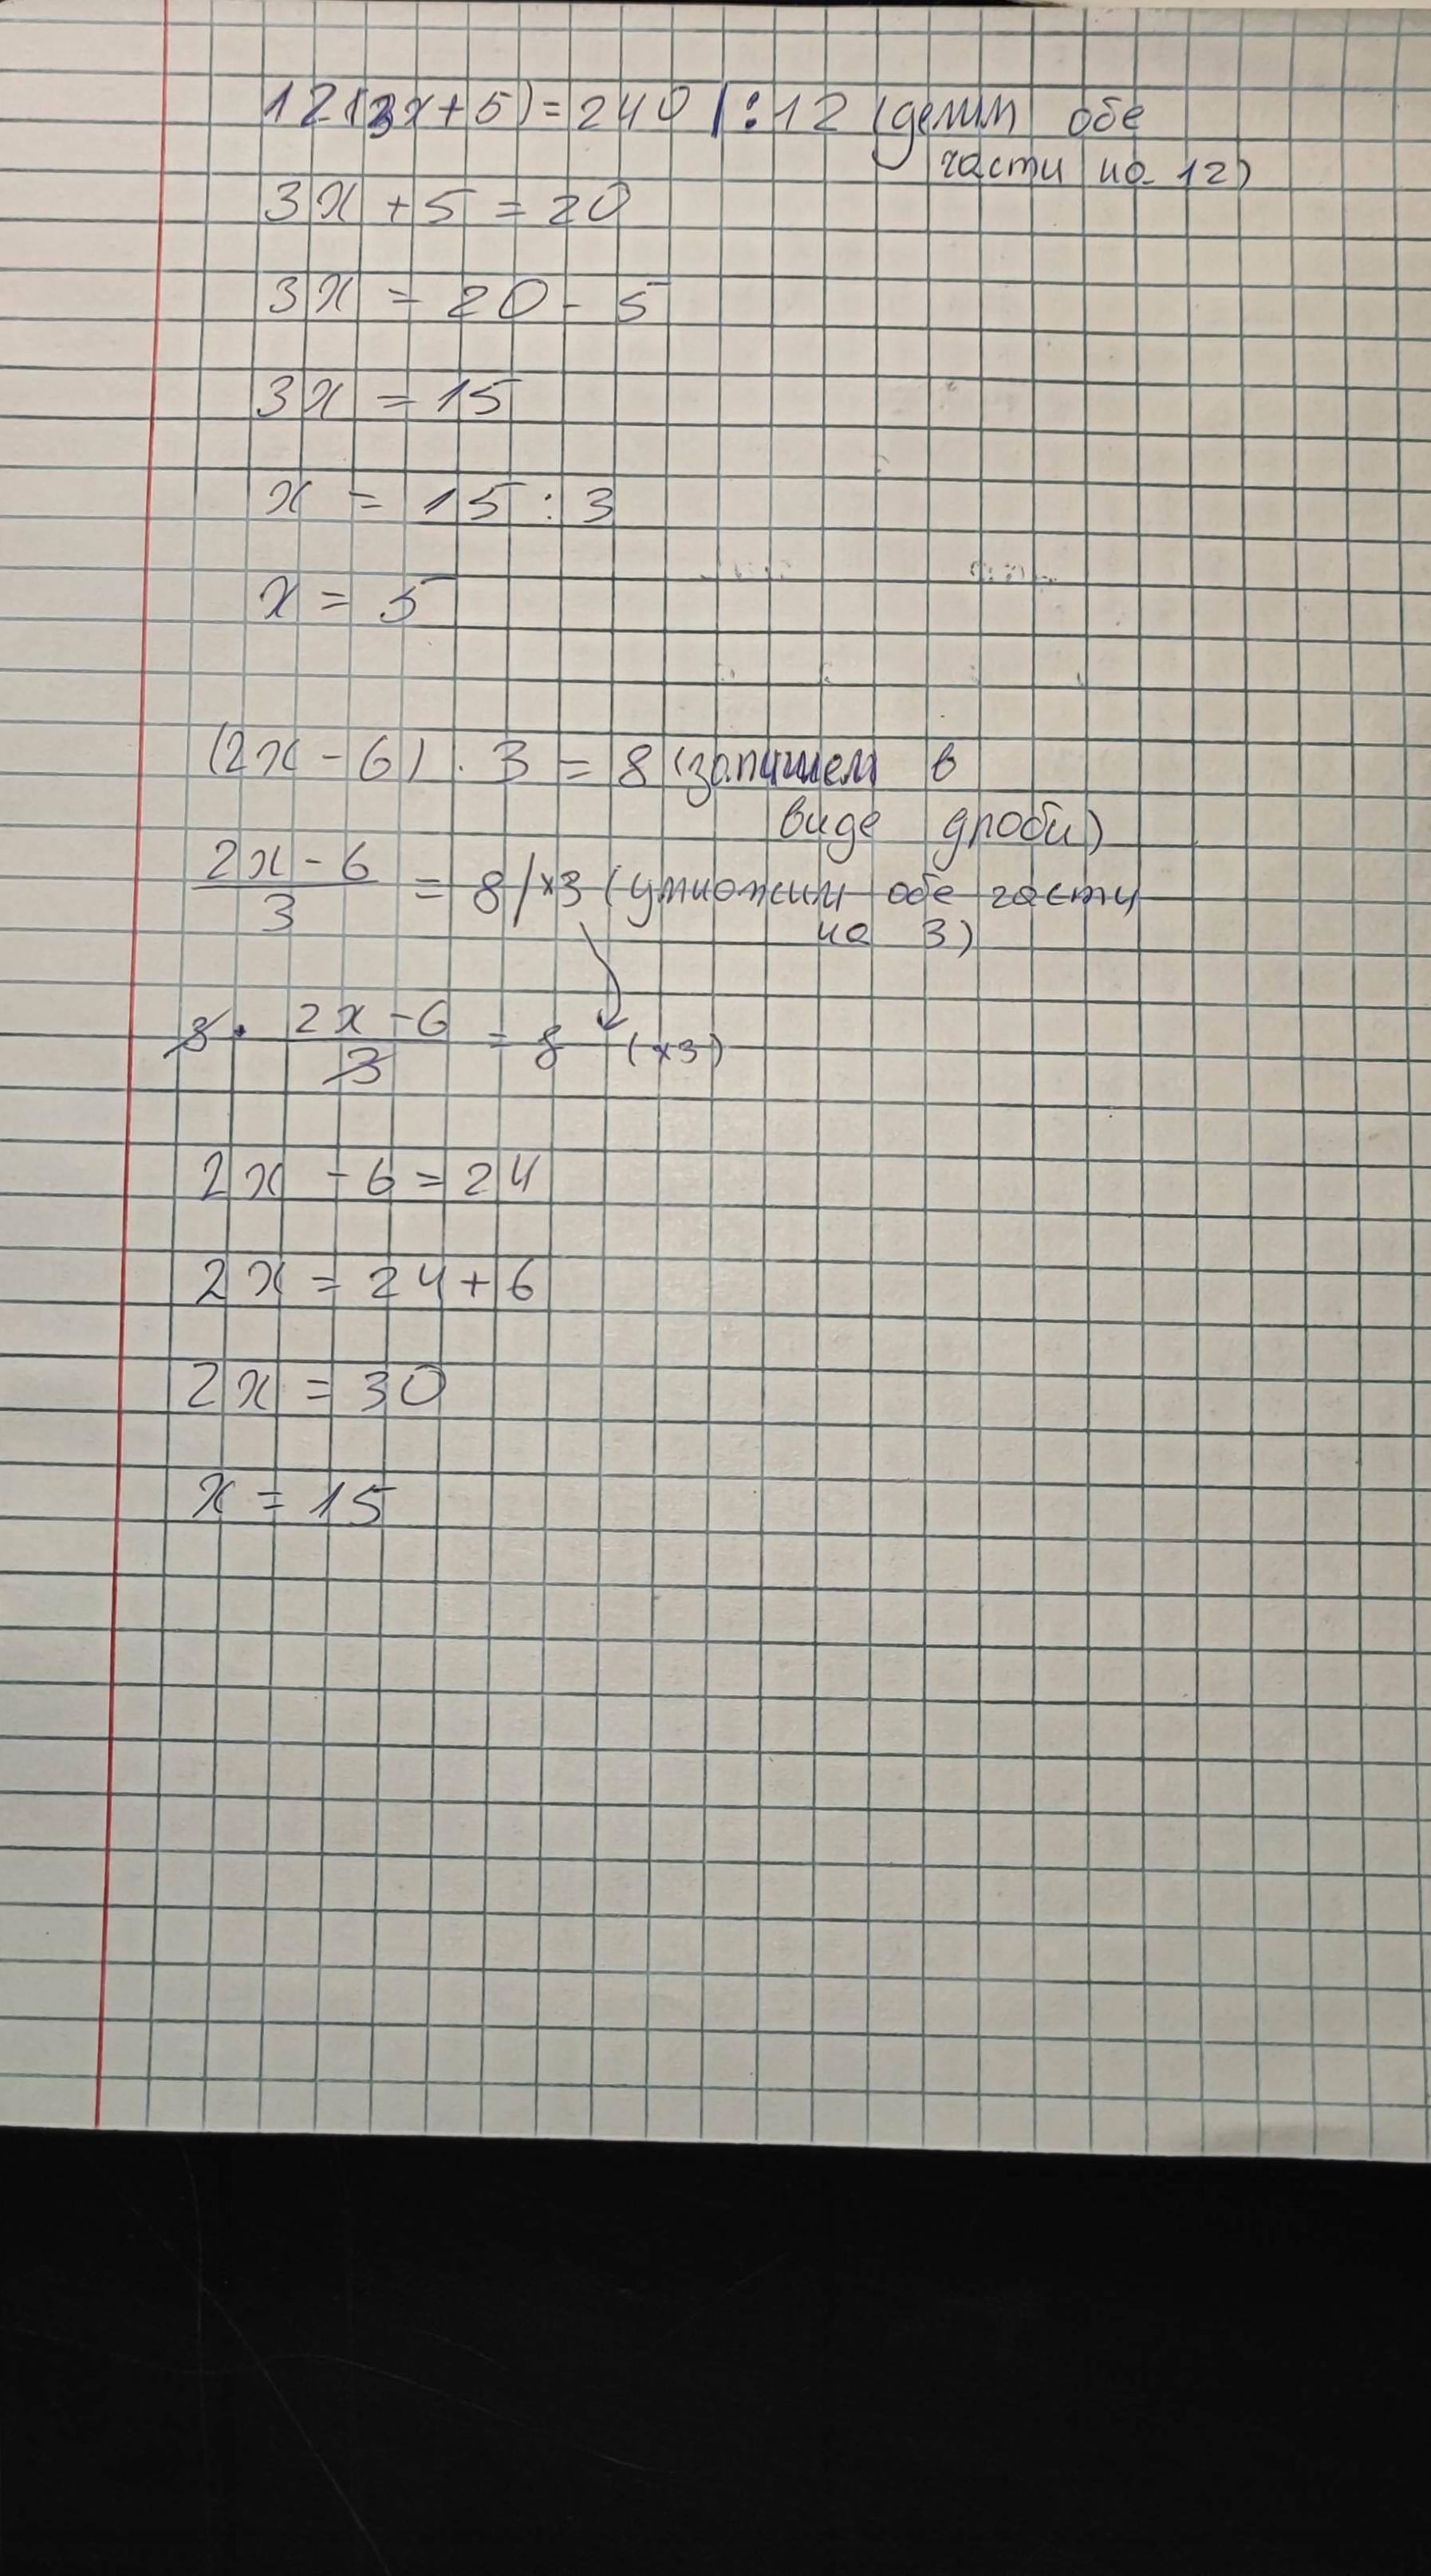 12(3x+5)=240 | :12 (делим обе
части на 12)
3x + 5 = 20
3x = 20 - 5
3x = 15
x = 15 : 3
x = 5
(2x - 6) . 3 = 8 (запишем в
виде дроби)
2x - 6
3
= 8 / ×3 (умножим обе части
на 3)
3 · 2x - 6
3
= 8 (×3)
2x - 6 = 24
2x = 24 + 6
2x = 30
x = 15